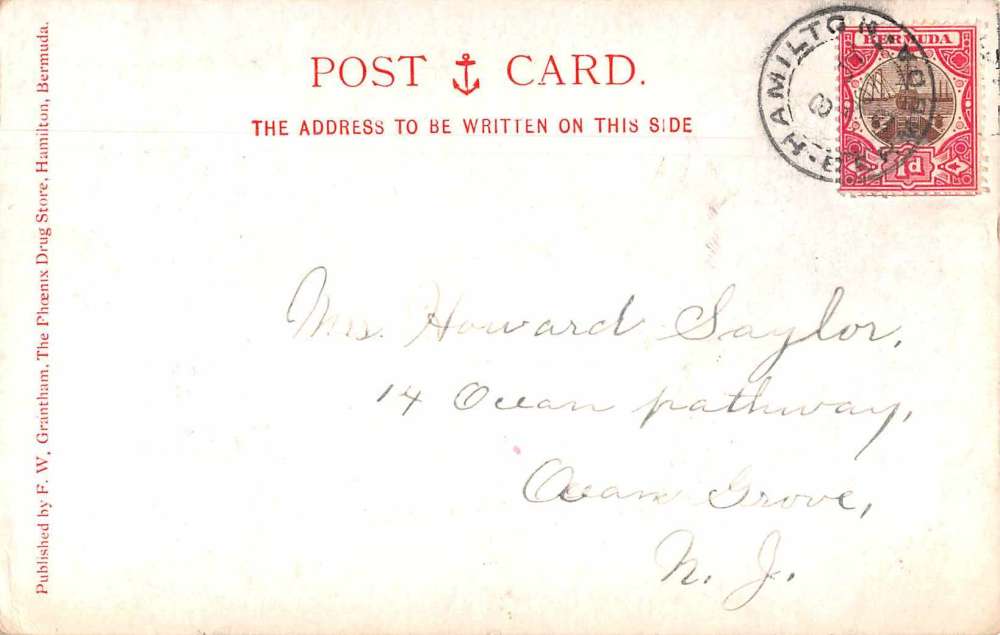 POST CARD.
THE ADDRESS TO BE WRITTEN ON THIS SIDE
HAMILTON
BERMUDA
1d
Mrs. Howard Saylor,
14 Ocean pathway,
Ocean Grove,
N. J.
Published by F. W. Grantham, The Phœnix Drug Store, Hamilton, Bermuda.